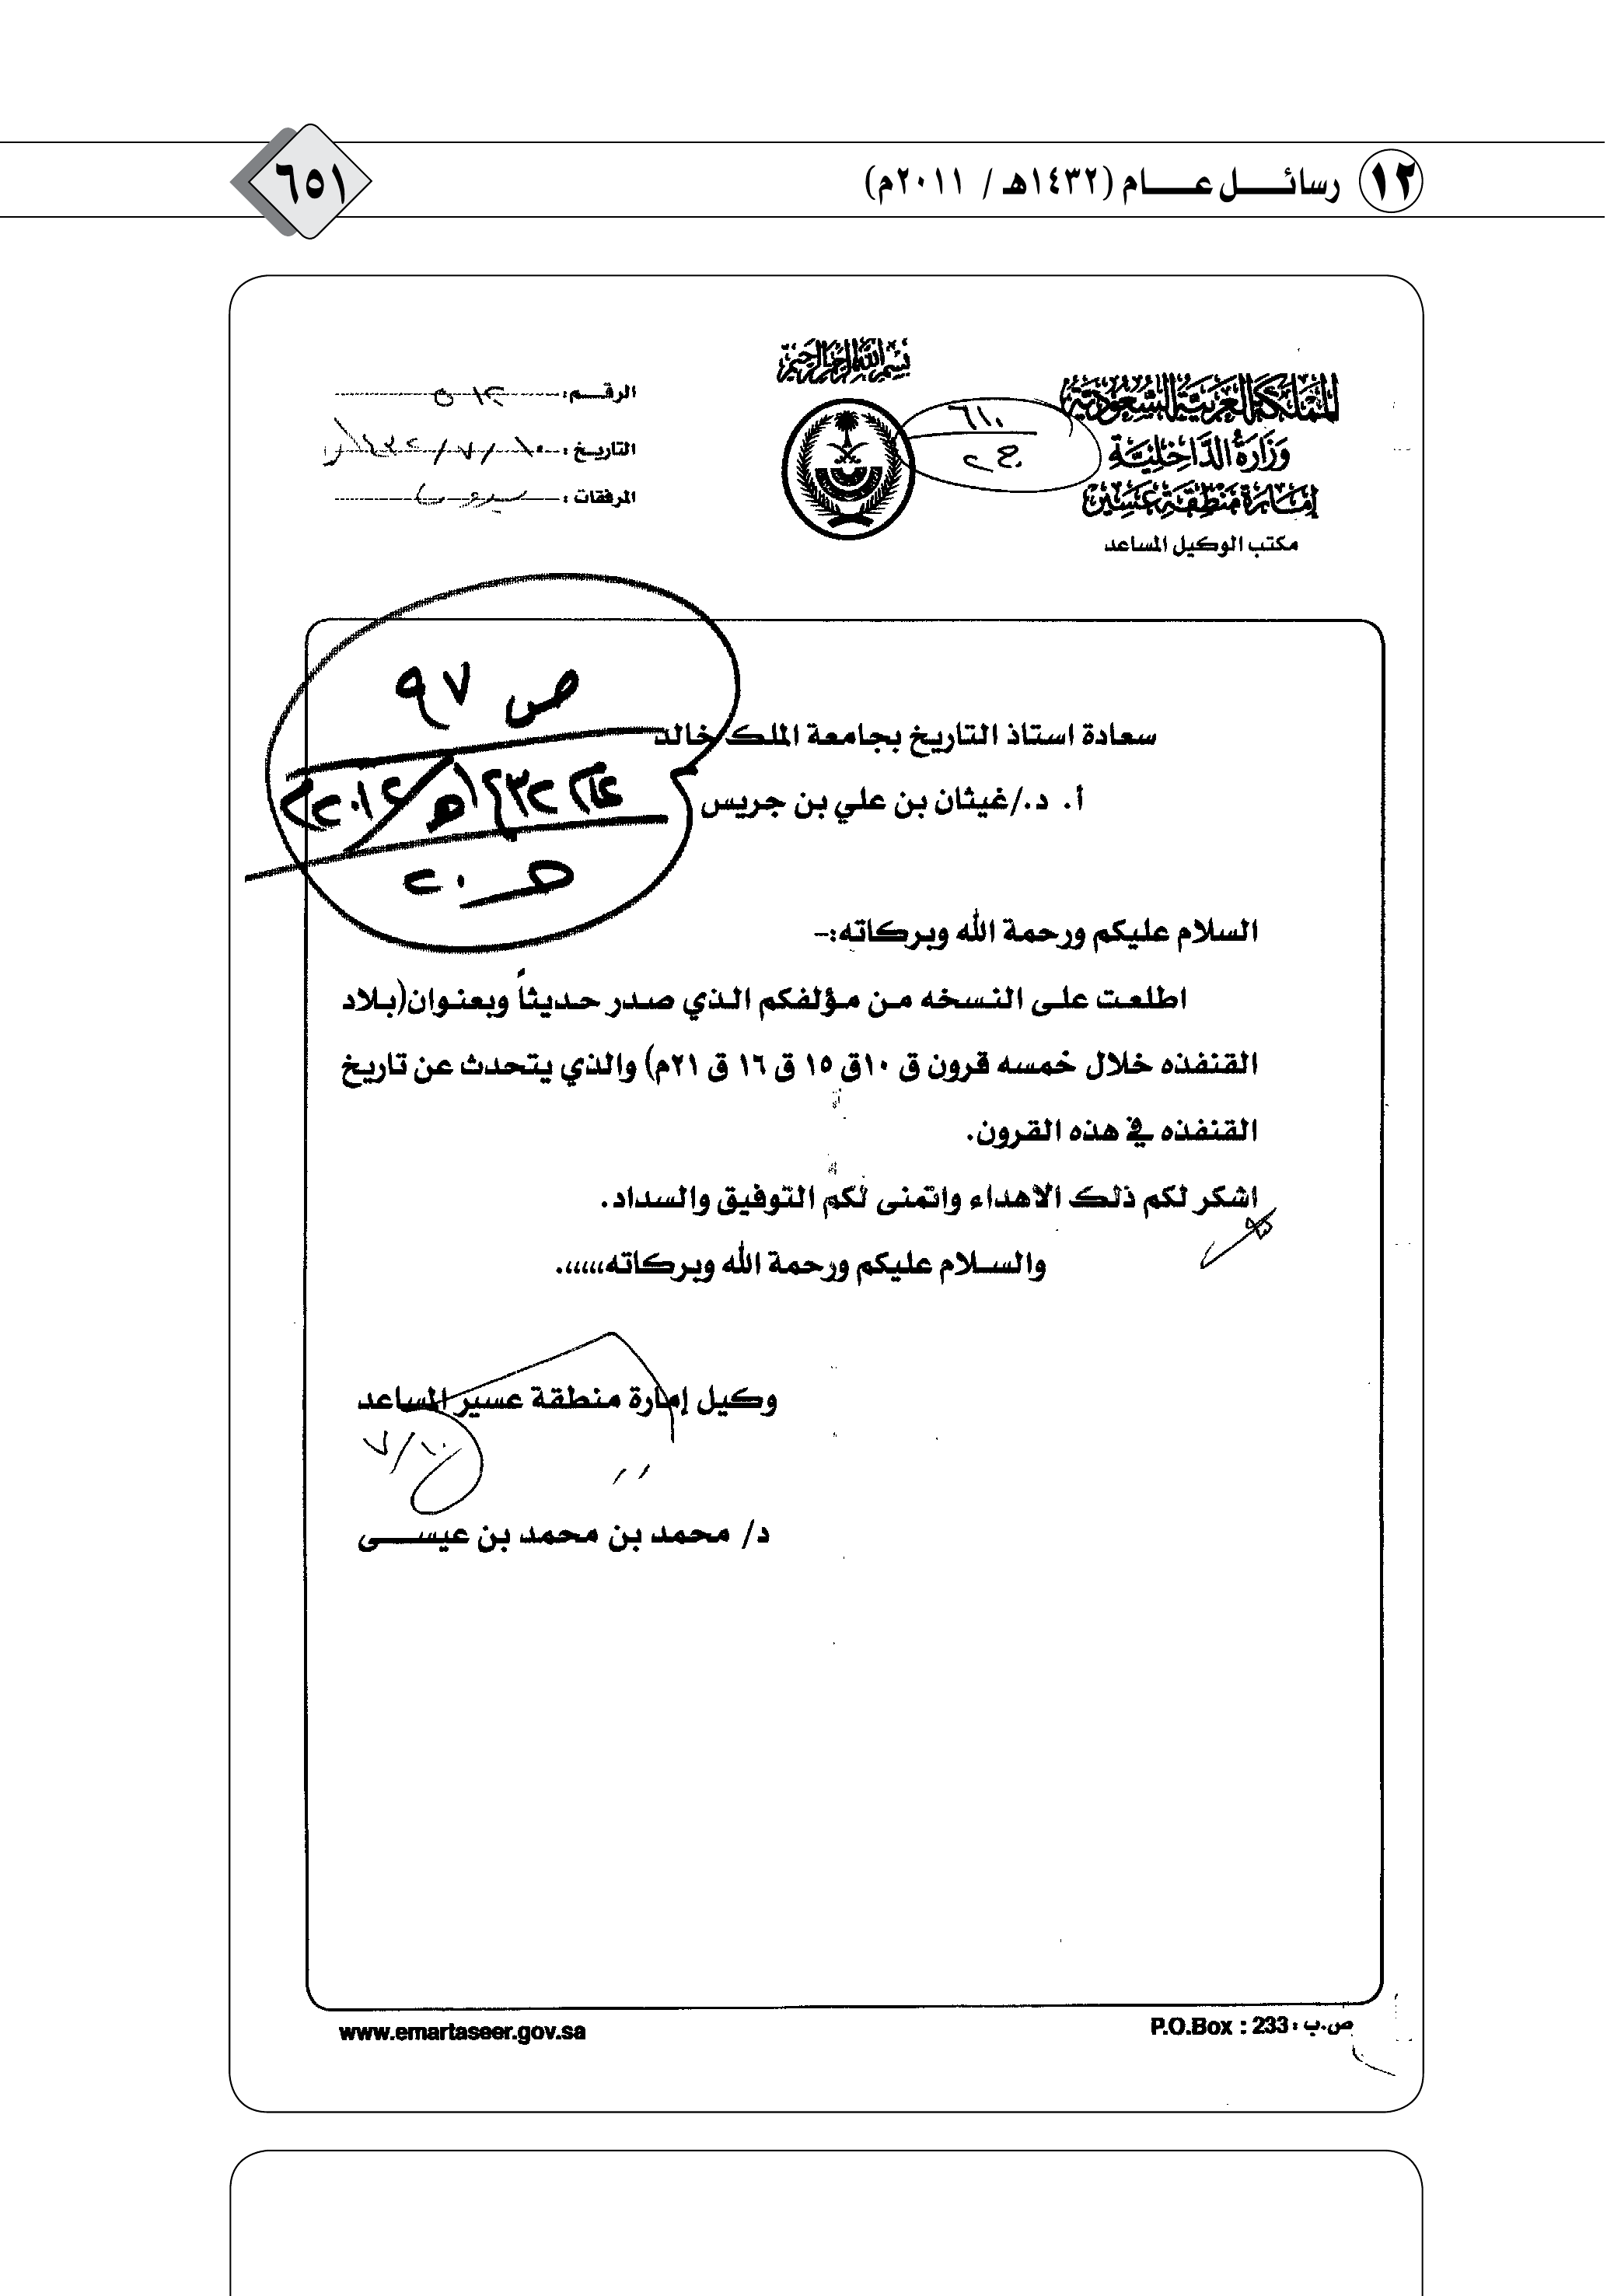 ١٢ رسائل عام (١٤٣٢هـ / ٢٠١١م)
٦٥١
بسم الله الرحمن الرحيم
المملكة العربية السعودية
وزارة الداخلية
إمارة منطقة عسير
مكتب الوكيل المساعد
٦١٠
ج ٢
الرقم:
التاريخ: ١٠ / ٧ /
المرفقات:
ص ٩٧
عام ١٤٣٢هـ/
ح ٢٠
سعادة استاذ التاريخ بجامعة الملك خالد
أ. د./غيثان بن علي بن جريس
السلام عليكم ورحمة الله وبركاته:-
اطلعت على النسخه من مؤلفكم الذي صدر حديثاً وبعنوان(بلاد
القنفذه خلال خمسه قرون ق ١٠ق ١٥ ق ١٦ ق ٢١م) والذي يتحدث عن تاريخ
القنفذه في هذه القرون.
اشكر لكم ذلك الأهداء واتمنى لكم التوفيق والسداد.
والسلام عليكم ورحمة الله وبركاته،،،،،،.
وكيل إمارة منطقة عسير المساعد
٧/١٠
د/ محمد بن محمد بن عيسى
www.emartaseer.gov.sa
ص.ب : P.O.Box : 233